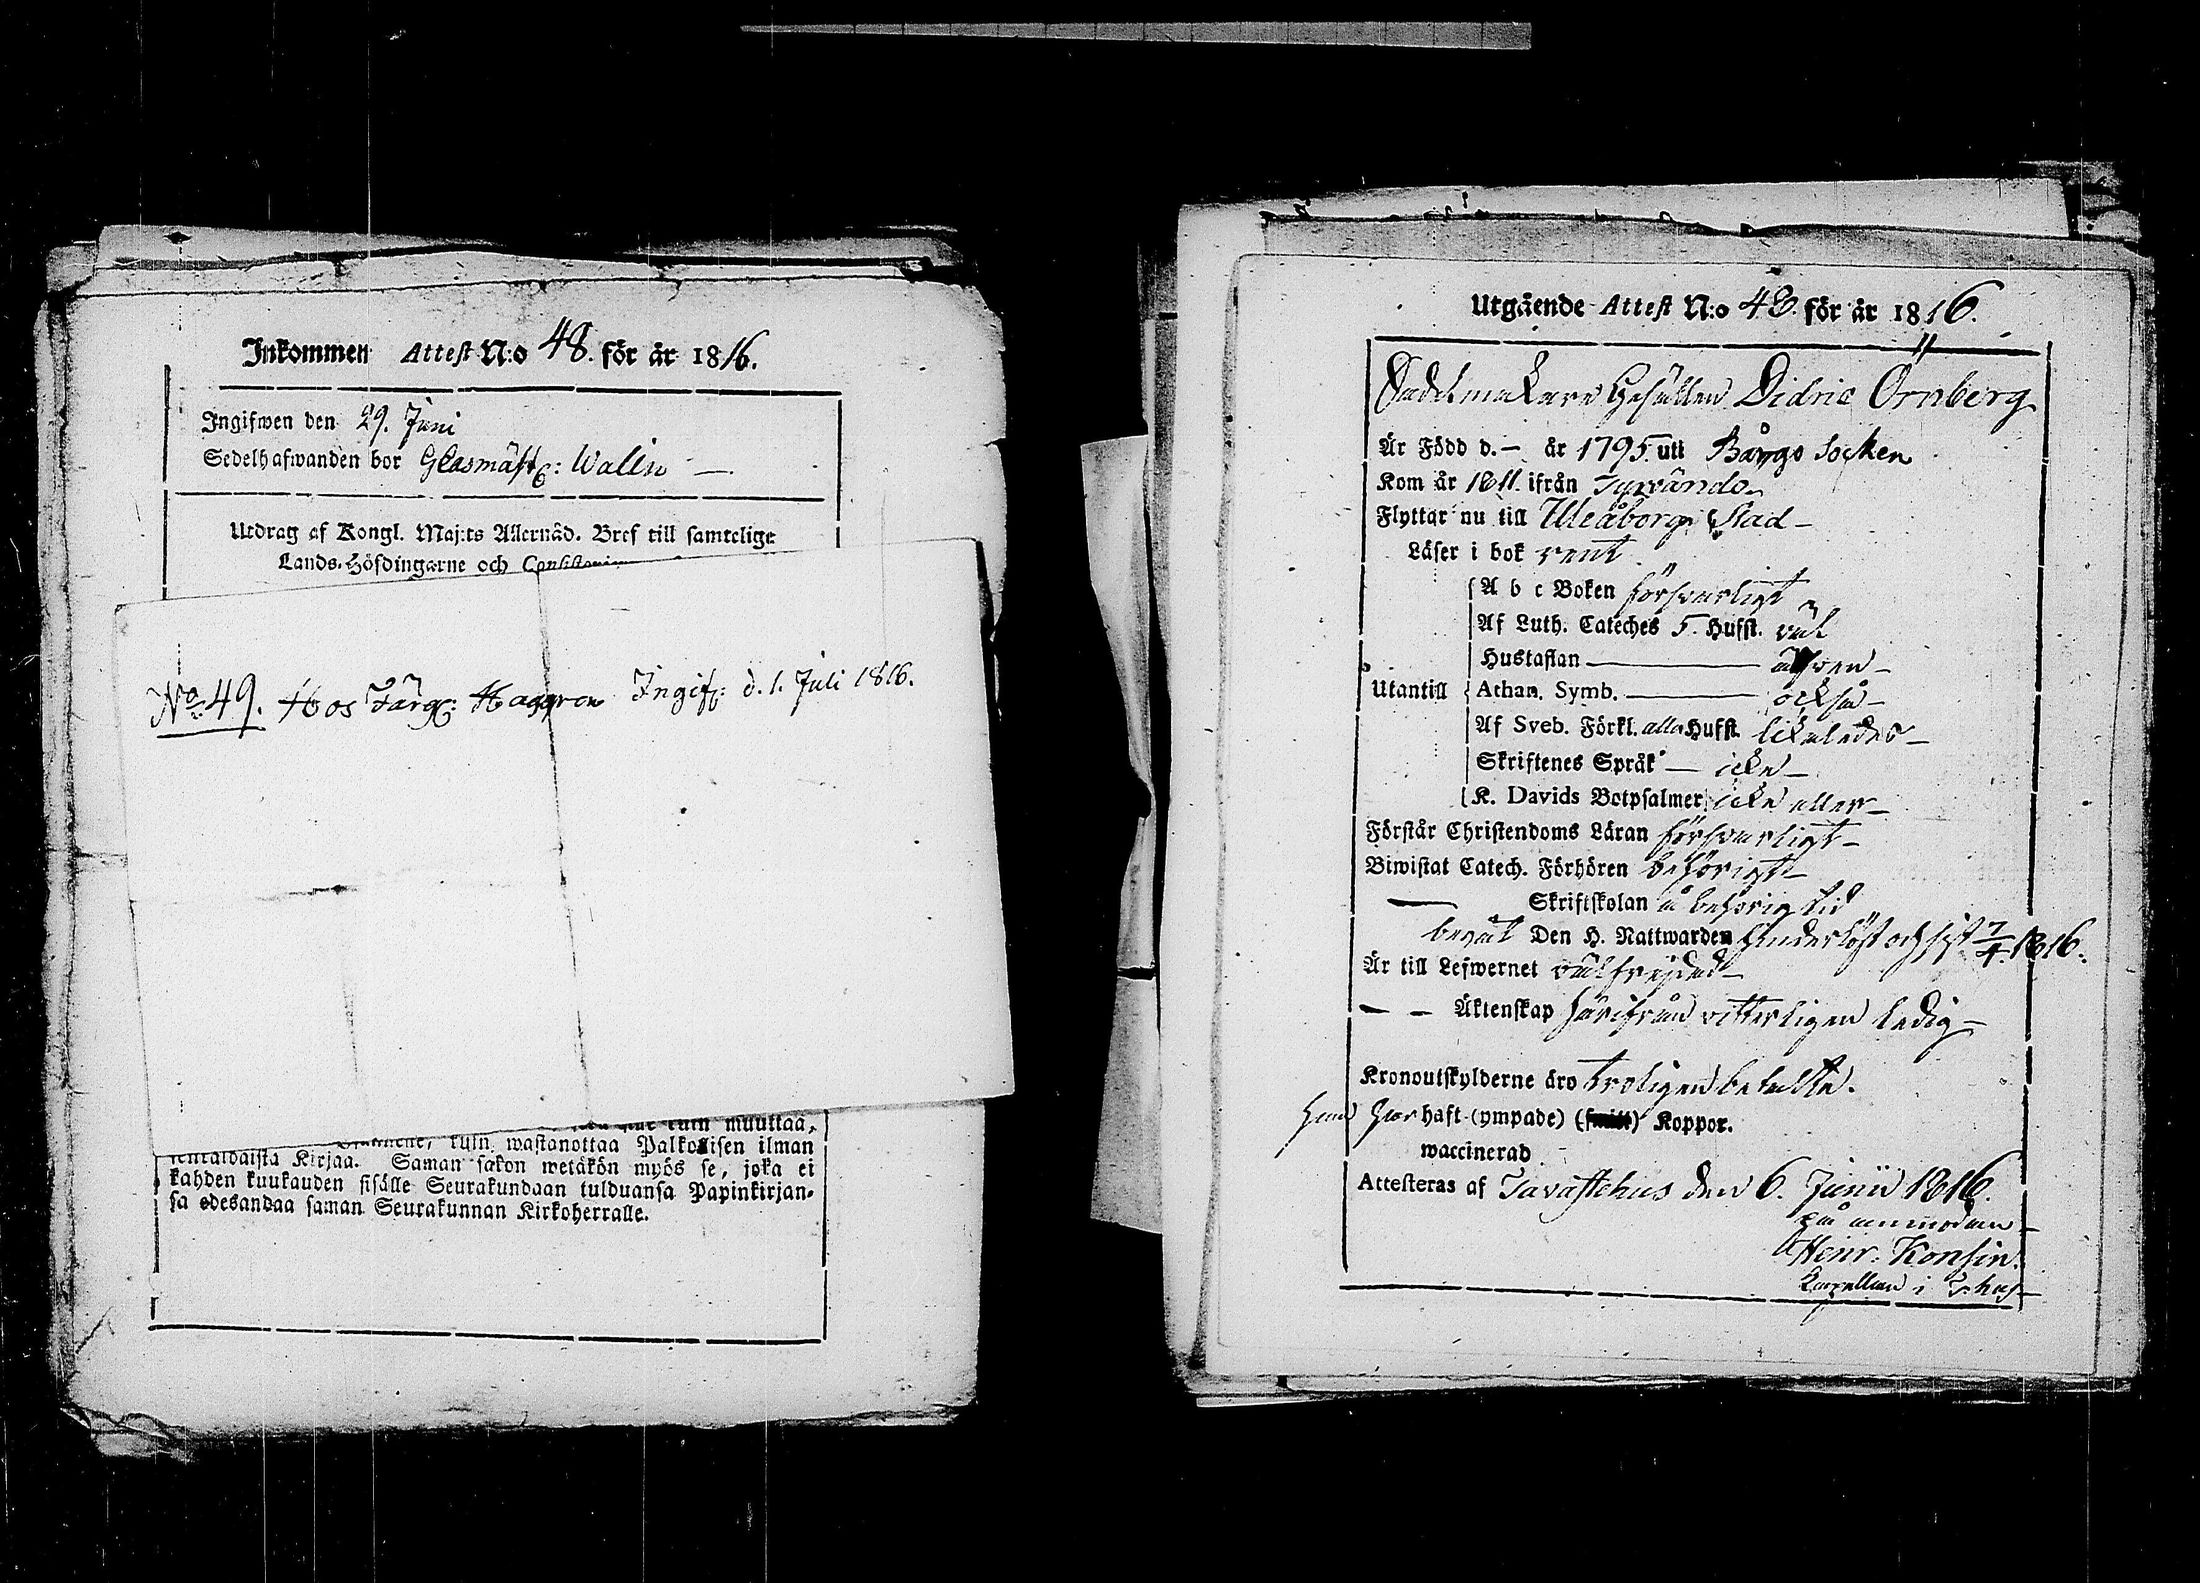 Inkommen Attest N:o 48. för år 1816.
Ingifwen den 29. Juni
Sedelhafwanden bor Glasmäst: Walin —
Utdrag af Kongl. Maj:ts Allernåd. Bref till samtelige
Lands-Höfdingarne och
No. 49. Hos Färg: Haggren Ingif: d. 1. Juli 1816.
kuin muuttaa,
kuin wastanottaa Palkollisen ilman
Kirjaa. Saman sakon wetäkön myös se, joka ei
kahden kuukauden sisälle Seurakundaan tulduansa Papinkirjan-
sa edesandaa saman Seurakunnan Kirkoherralle.
Utgående Attest N:o 48. för år 1816.
Sadelmakare Gesällen Didric Örnberg
Är Född d. — år 1795. uti Bårgo Socken
Kom år 1811. ifrån Tyrvändo
Flyttar nu till Uleåborgs Stad —
Läser i bok rent
A b c Boken försvarligt
Af Luth. Cateches 5. Hufst. väl
Hustaflan — äfven —
Utantill Athan. Symb. — också —
Af Sveb. Förkl. alla Hufst. likaledes —
Skriftenes Språk — icke —
K. Davids Botpsalmer icke eller —
Förstår Christendoms Läran försvarligt —
Biwistat Catech. Förhören behörigt —
— Skriftskolan å behörig tid
begåt Den H. Nattwarden hinderlöst och sist 7/4. 1816.
Är till Lefwernet välfrejdad —
— — Äktenskap härifrån vitterligen ledig —
Kronoutskylderne äro troligen betalte.
haft (ympade) Koppor.
waccinerad
Attesteras af Tavastehus den 6. Junii 1816.
på ämbetets
Henr: Konsin.
Capellan i T:hus —